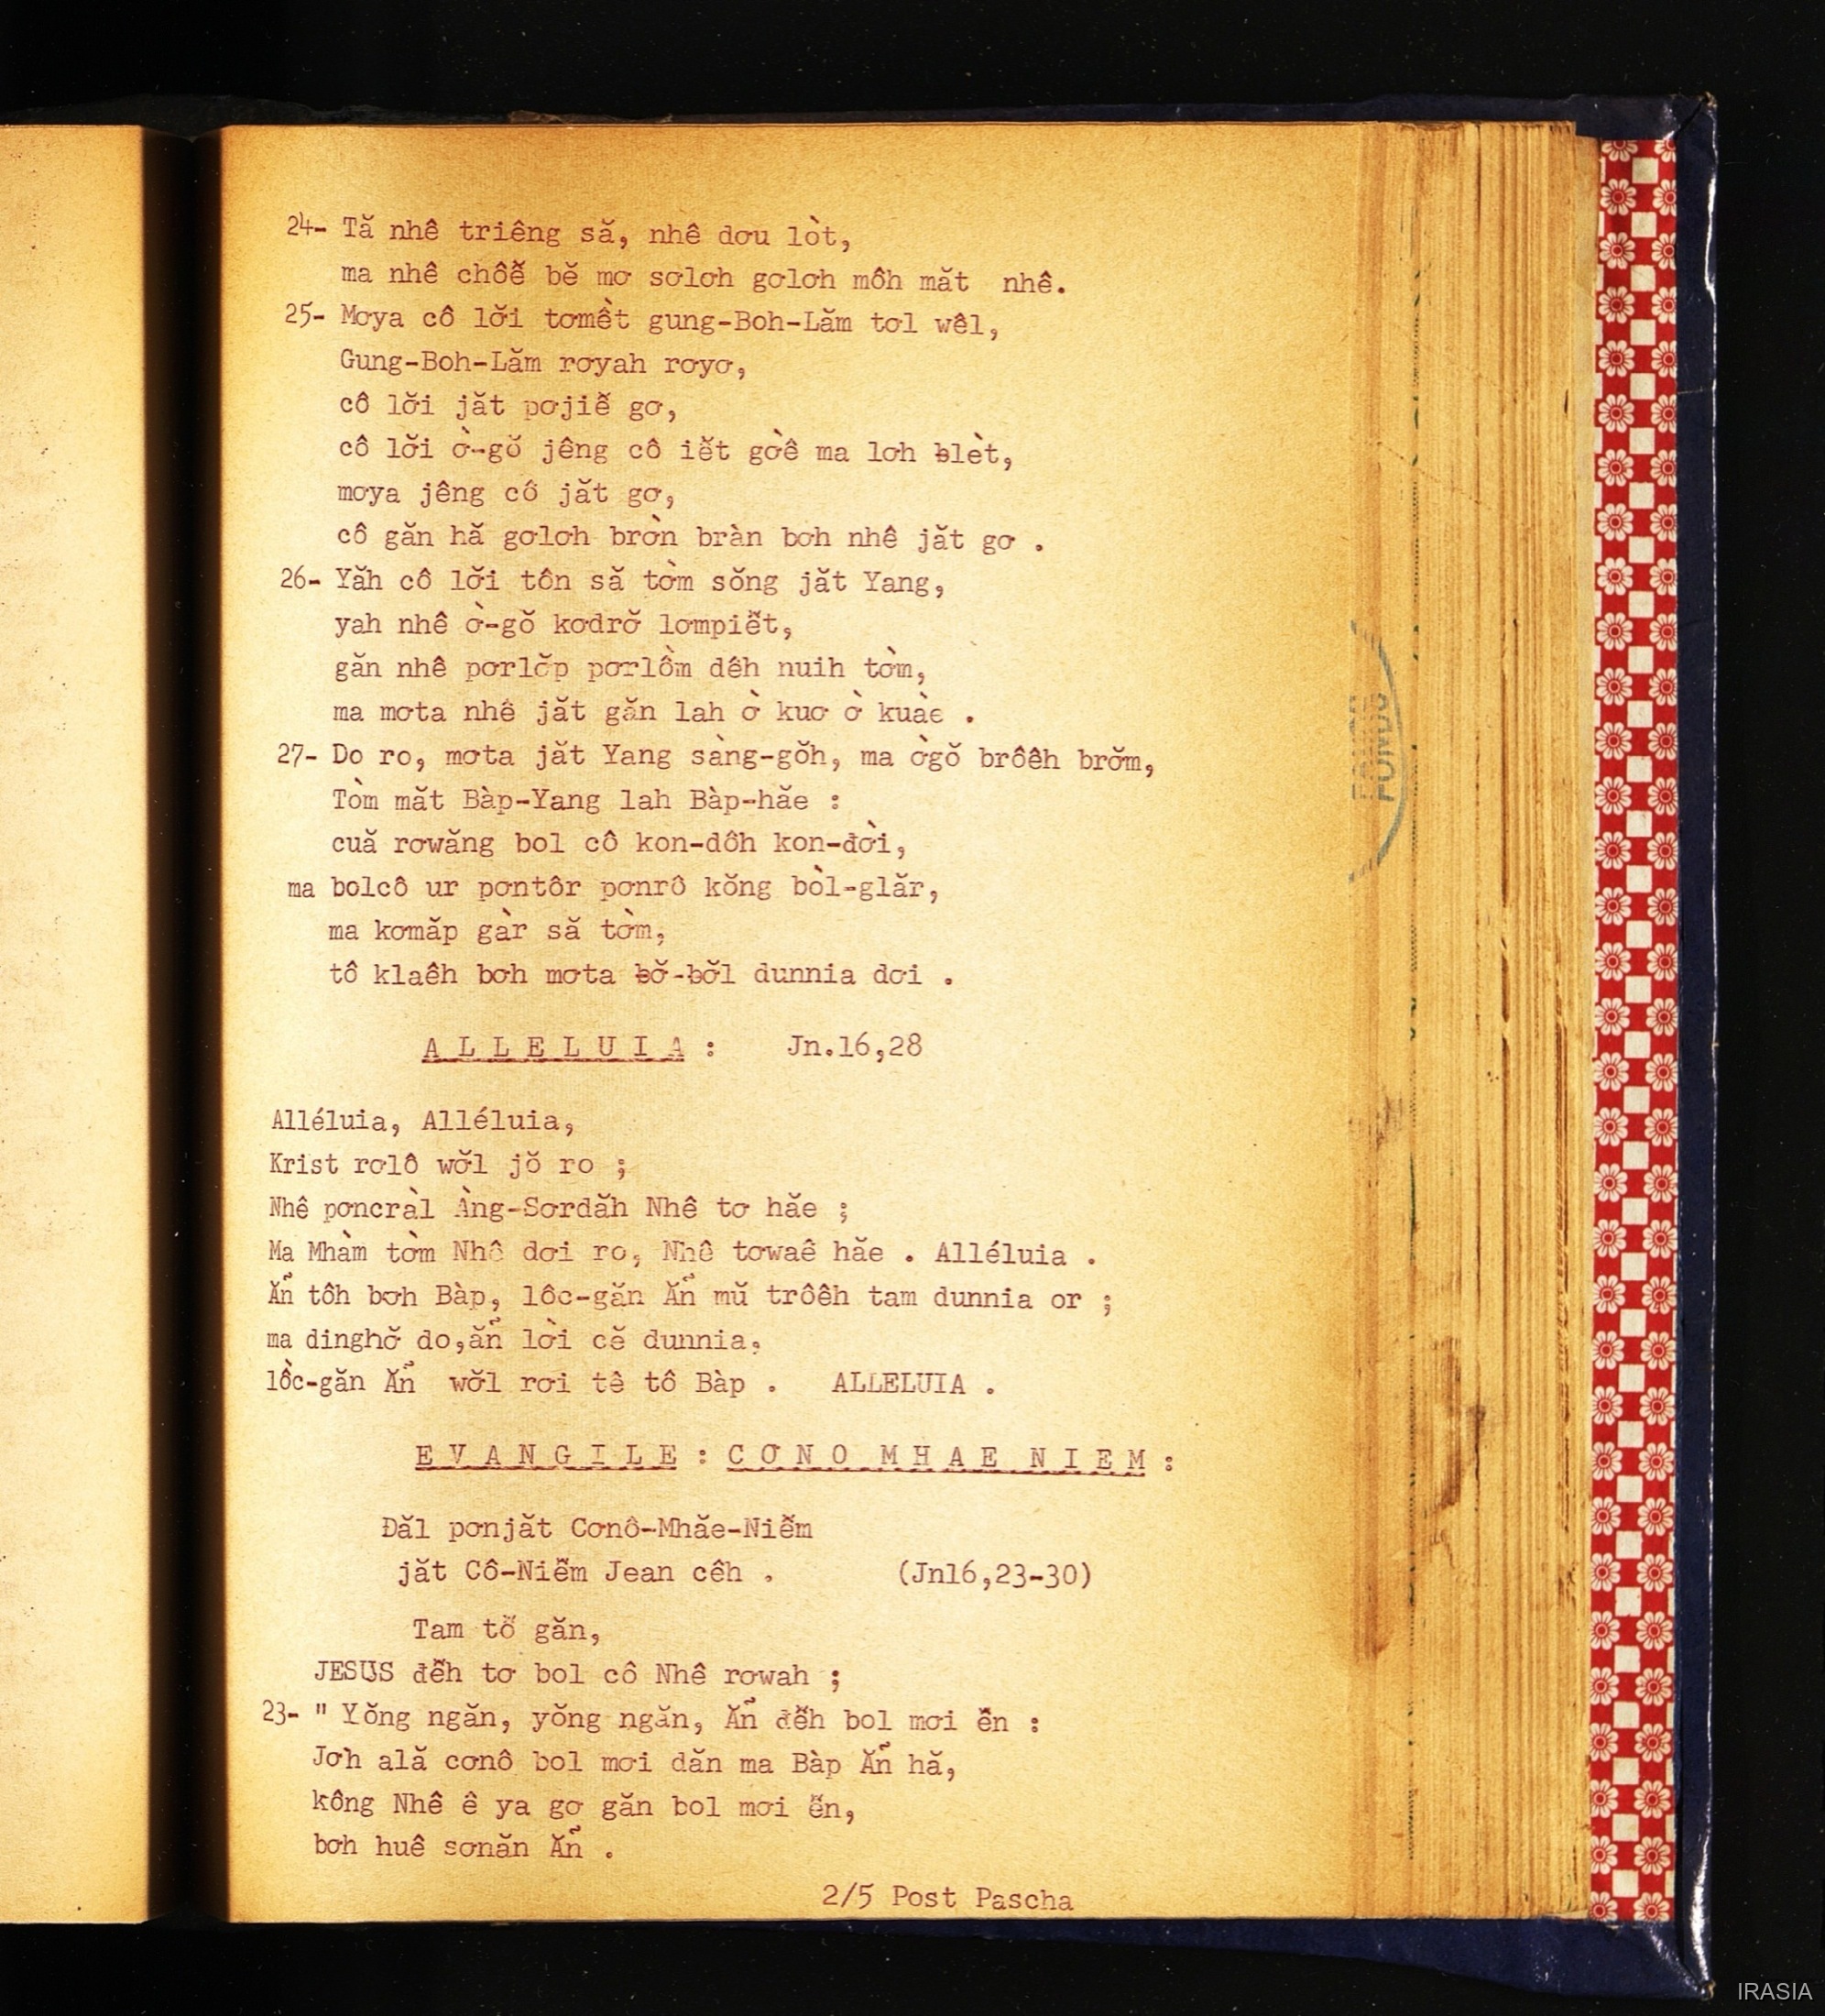 24- Tă nhê triêng să, nhê dơu lòt,
ma nhê chôê̆ bĕ mơ sơlơh gơlơh môh măt nhê.
25- Mơya cô lơ̆i tơmềt gung-Boh-Lăm tơl wêl,
Gung-Boh-Lăm rơyah rơyơ,
cô lơ̆i jăt pơjiê̆ gơ,
cô lơ̆i ờ-gŏ jêng cô iê̆t gờê ma lơh ƀlèt,
mơya jêng cô jăt gơ,
cô găn hă gơlơh bròn bràn bơh nhê jăt gơ .
26- Yăh cô lơ̆i tôn să tờm sŏng jăt Yang,
yah nhê ờ-gŏ kơdrơ̆ lơmpiê̆t,
găn nhê pơrlŏp pơrlồm dêh nuih tờm,
ma mơta nhê jăt găn lah ờ kuơ ờ kuàe .
27- Do ro, mơta jăt Yang sàng-gŏh, ma ờgŏ brôêh brơ̆m,
Tòm măt Bàp-Yang lah Bàp-hăe :
cuă rơwăng bol cô kon-dôh kon-đời,
ma bolcô ur pơntôr pơnrô kŏng bòl-glăr,
ma kơmăp gàr să tờm,
tô klaêh bơh mơta ƀơ̆-ƀơ̆l dunnia dơi .
A L L E L U I A : Jn.16,28
Alléluia, Alléluia,
Krist rơlô wơ̆l jŏ ro ;
Nhê pơncràl Àng-Sơrdăh Nhê tơ hăe ;
Ma Mhàm tờm Nhê dơi ro, Nhê tơwaê hăe . Alléluia .
Ẳn tôh bơh Bàp, lôc-găn Ẳn mŭ trôêh tam dunnia or ;
ma dinghơ̆ do,ẳn lời cĕ dunnia,
lồc-găn Ẳn wơ̆l rơi tê tô Bàp . ALLELUIA .
E V A N G I L E : C Ơ N O M H A E N I E M :
Đăl pơnjăt Cơnô-Mhăe-Niê̆m
jăt Cô-Niê̆m Jean cêh . (Jn16,23-30)
Tam tô̆ găn,
JESUS đê̆h tơ bol cô Nhê rơwah ;
23- " Yŏng ngăn, yŏng ngăn, Ẳn đê̆h bol mơi ê̆n :
Jơh ală cơnô bol mơi dăn ma Bàp Ẳn hă,
kông Nhê ê ya gơ găn bol mơi ê̆n,
bơh huê sơnăn Ẳn .
2/5 Post Pascha
FONDS
IRASIA